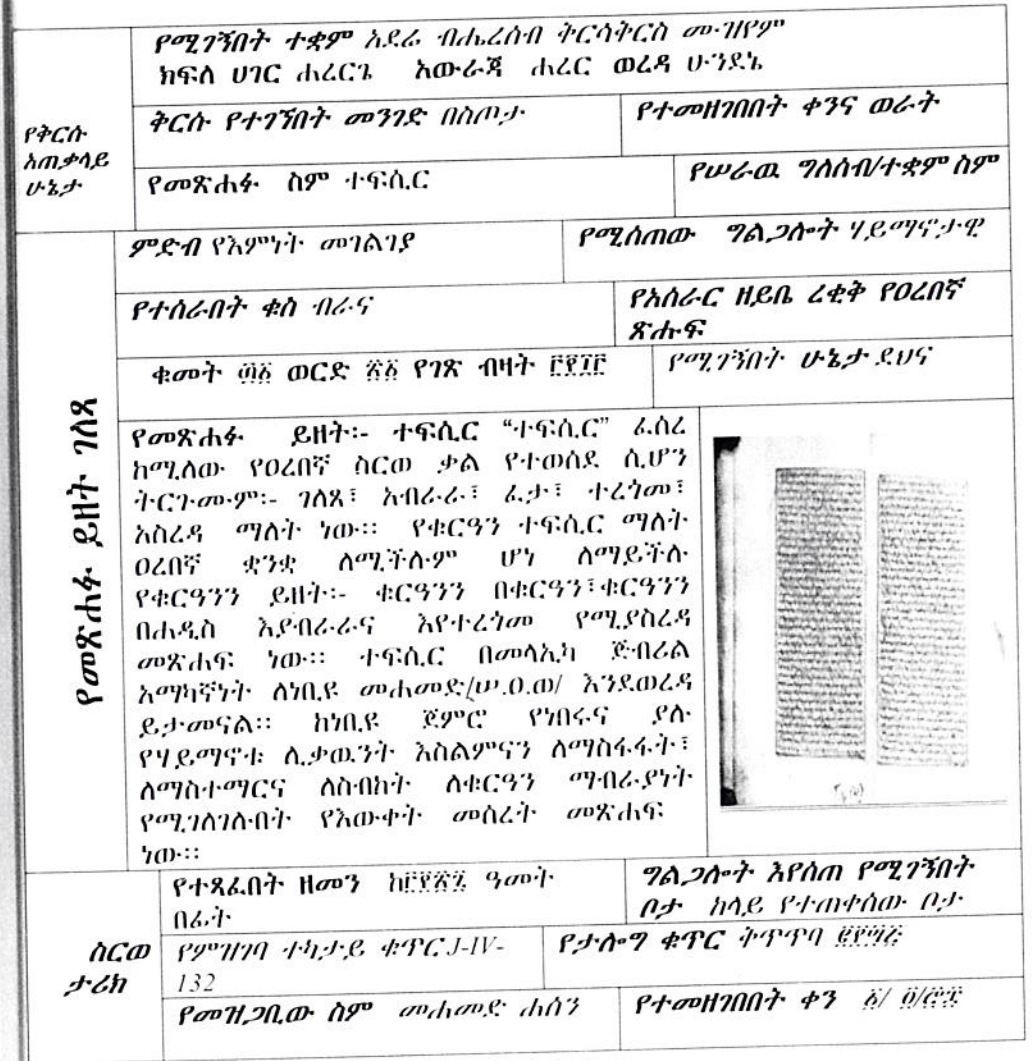 የሚገኝበት ተቋም አደሬ ብሔረሰብ ቅርሳቅርስ ሙዝየም
ክፍለ ሀገር ሐረርጌ አውራጃ ሐረር ወረዳ ሁንደኔ
የቅርሱ
አጠቃላይ
ሁኔታ
ቅርሱ የተገኘበት መንገድ በስጦታ
የተመዘገበበት ቀንና ወራት
የመጽሐፉ ስም ተፍሲር
የሠራዉ ግለሰብ/ተቋም ስም
የመጽሐፉ ይዘት ገለጻ
ምድብ የእምነት መገልገያ
የሚሰጠው ግልጋሎት ሃይማኖታዊ
የተሰራበት ቁስ ብራና
የአሰራር ዘይቤ ረቂቅ የዐረበኛ
ጽሑፍ
ቁመት ወርድ የገጽ ብዛት
የሚገኝበት ሁኔታ ደህና
የመጽሐፉ ይዘት፡- ተፍሲር “ተፍሲር” ፈሰረ
ከሚለው የዐረበኛ ስርወ ቃል የተወሰደ ሲሆን
ትርጉሙም፡- ገለጸ፣ አብራራ፣ ፈታ፣ ተረጎመ፣
አስረዳ ማለት ነው፡፡ የቁርዓን ተፍሲር ማለት
ዐረበኛ ቋንቋ ለሚችሉም ሆነ ለማይችሉ
የቁርዓንን ይዘት፡- ቁርዓንን በቁርዓን፣ቁርዓንን
በሐዲስ እያብራራና እየተረጎመ የሚያስረዳ
መጽሐፍ ነው፡፡ ተፍሲር በመላኢካ ጅብሪል
አማካኝነት ለነቢዩ መሐመድ/ሠ.ዐ.ወ/ እንደወረዳ
ይታመናል፡፡ ከነቢዩ ጀምሮ የነበሩና ያሉ
የሃይማኖቱ ሊቃዉንት እስልምናን ለማስፋፋት፣
ለማስተማርና ለስብከት ለቁርዓን ማብራያነት
የሚገለገሉበት የእውቀት መሰረት መጽሐፍ
ነው፡፡
ስርወ
ታሪክ
የተጻፈበት ዘመን ዓመት
በፊት
ግልጋሎት እየሰጠ የሚገኝበት
ቦታ ከላይ የተጠቀሰው ቦታ
የምዝገባ ተከታይ ቁጥር J-IV-
132
የታሎግ ቁጥር ቅጥጥባ
የመዝጋቢው ስም መሐመድ ሐሰን
የተመዘገበበት ቀን